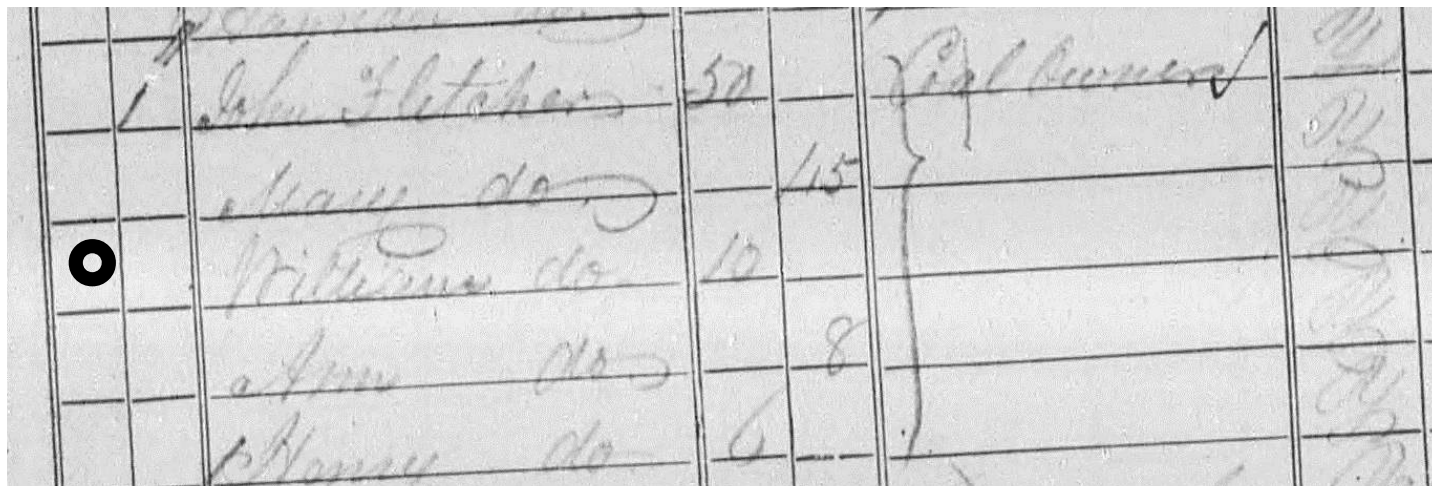 1 John Fletcher 50 Coal Owner
Mary do 45
William do 10
Ann do 8
Henry do 6